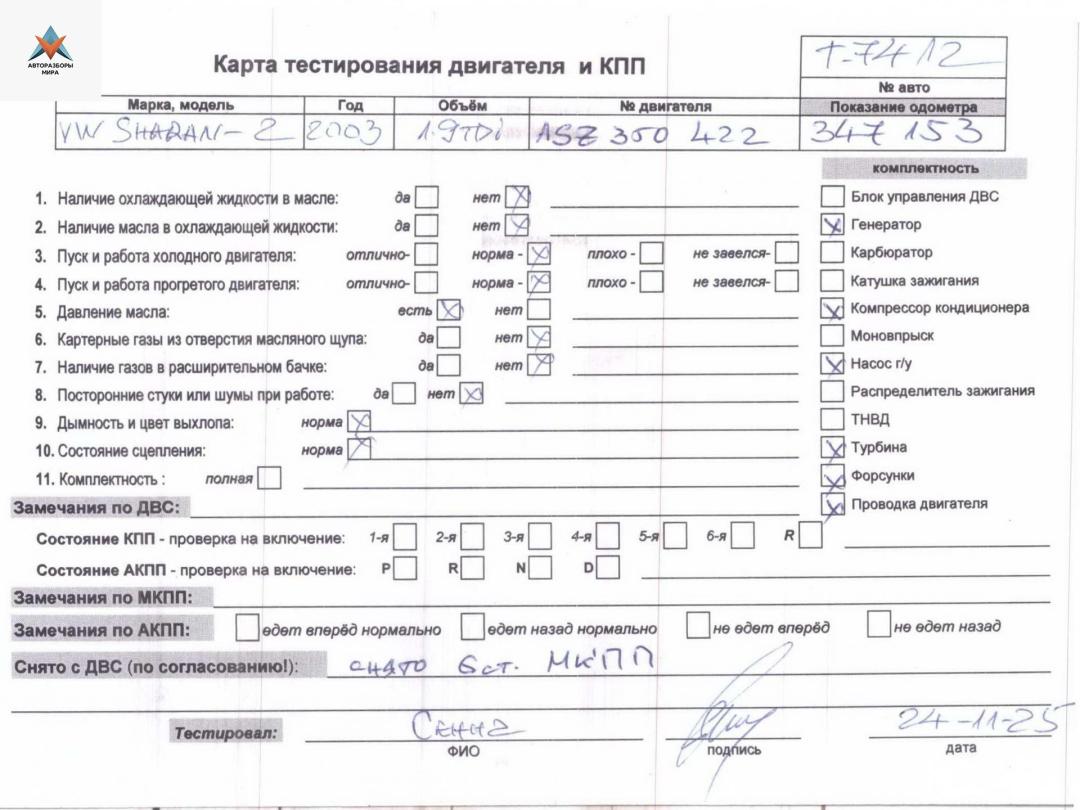 АВТОРАЗБОРЫ
МИРА
Карта тестирования двигателя и КПП
T-7412
№ авто
Марка, модель Год Объём № двигателя Показание одометра
VW SHARAN-2 2003 1.9TDi ASZ 350 422 347 153
комплектность
1. Наличие охлаждающей жидкости в масле: да нет X
Блок управления ДВС
2. Наличие масла в охлаждающей жидкости: да нет X
X Генератор
3. Пуск и работа холодного двигателя: отлично- норма - X плохо - не завелся-
Карбюратор
4. Пуск и работа прогретого двигателя: отлично- норма - X плохо - не завелся-
Катушка зажигания
5. Давление масла: есть X нет
X Компрессор кондиционера
6. Картерные газы из отверстия масляного щупа: да нет X
Моновпрыск
7. Наличие газов в расширительном бачке: да нет X
X Насос г/у
8. Посторонние стуки или шумы при работе: да нет X
Распределитель зажигания
9. Дымность и цвет выхлопа: норма X
ТНВД
10. Состояние сцепления: норма X
X Турбина
11. Комплектность : полная
X Форсунки
X Проводка двигателя
Замечания по ДВС:
Состояние КПП - проверка на включение: 1-я 2-я 3-я 4-я 5-я 6-я R
Состояние АКПП - проверка на включение: P R N D
Замечания по МКПП:
Замечания по АКПП: едет вперёд нормально едет назад нормально не едет вперёд не едет назад
Снято с ДВС (по согласованию!): снято 6ст. МКПП
Тестировал: 24-11-25
ФИО подпись дата